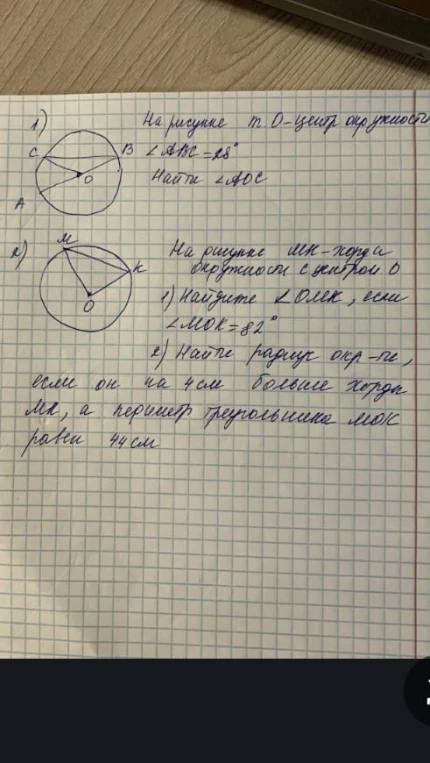 1)
На рисунке т. О-центр окружности
C
B
∠ABC=28°
O
Найти ∠AOC
A
2)
M
На рисунке МК-хорда
окружности с центром О
K
1) Найдите ∠OMK, если
O
∠MOK=82°
2) Найти радиус окр-ти,
если он на 4см больше хорды
МК, а периметр треугольника МОК
равен 44 см